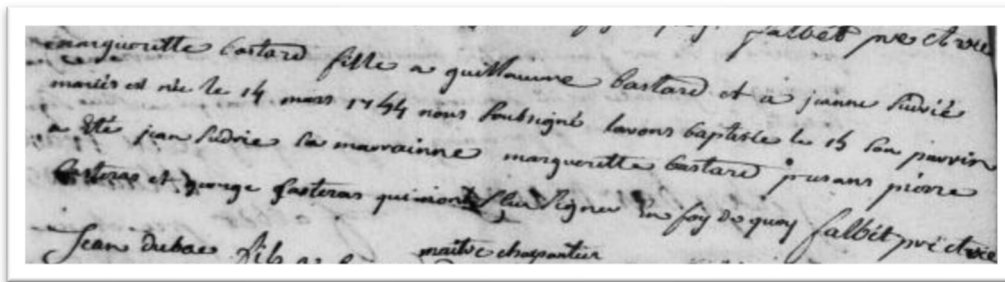 falbet pre et vic
margueritte bastard fille a guillaume bastard et a jeanne sudrié
mariés est née le 14 mars 1744 nous soubsigné lavons baptisée le 15 son parrin
a été jean sudrie sa marrainne margueritte bastard presans pierre
casteras et george casteras qui nont sceu signer en foy de quoy falbét pre et vic
jean dubac fils
maitre charpantier